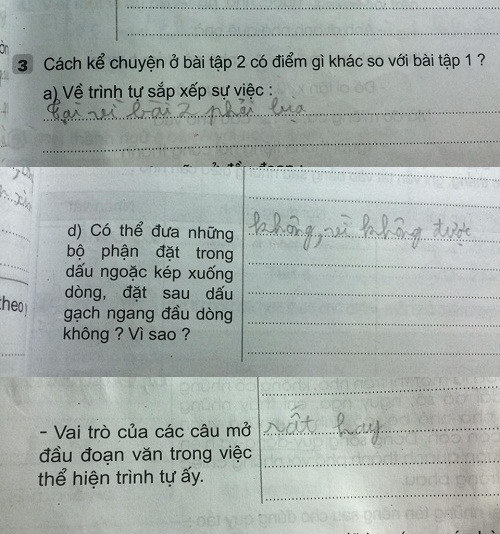 3 Cách kể chuyện ở bài tập 2 có điểm gì khác so với bài tập 1 ?
a) Về trình tự sắp xếp sự việc :
Tại vì bài 2 phải lựa
d) Có thể đưa những
bộ phận đặt trong
dấu ngoặc kép xuống
dòng, đặt sau dấu
gạch ngang đầu dòng
không ? Vì sao ?
không, vì không được
theo
- Vai trò của các câu mở
đầu đoạn văn trong việc
thể hiện trình tự ấy.
rất hay